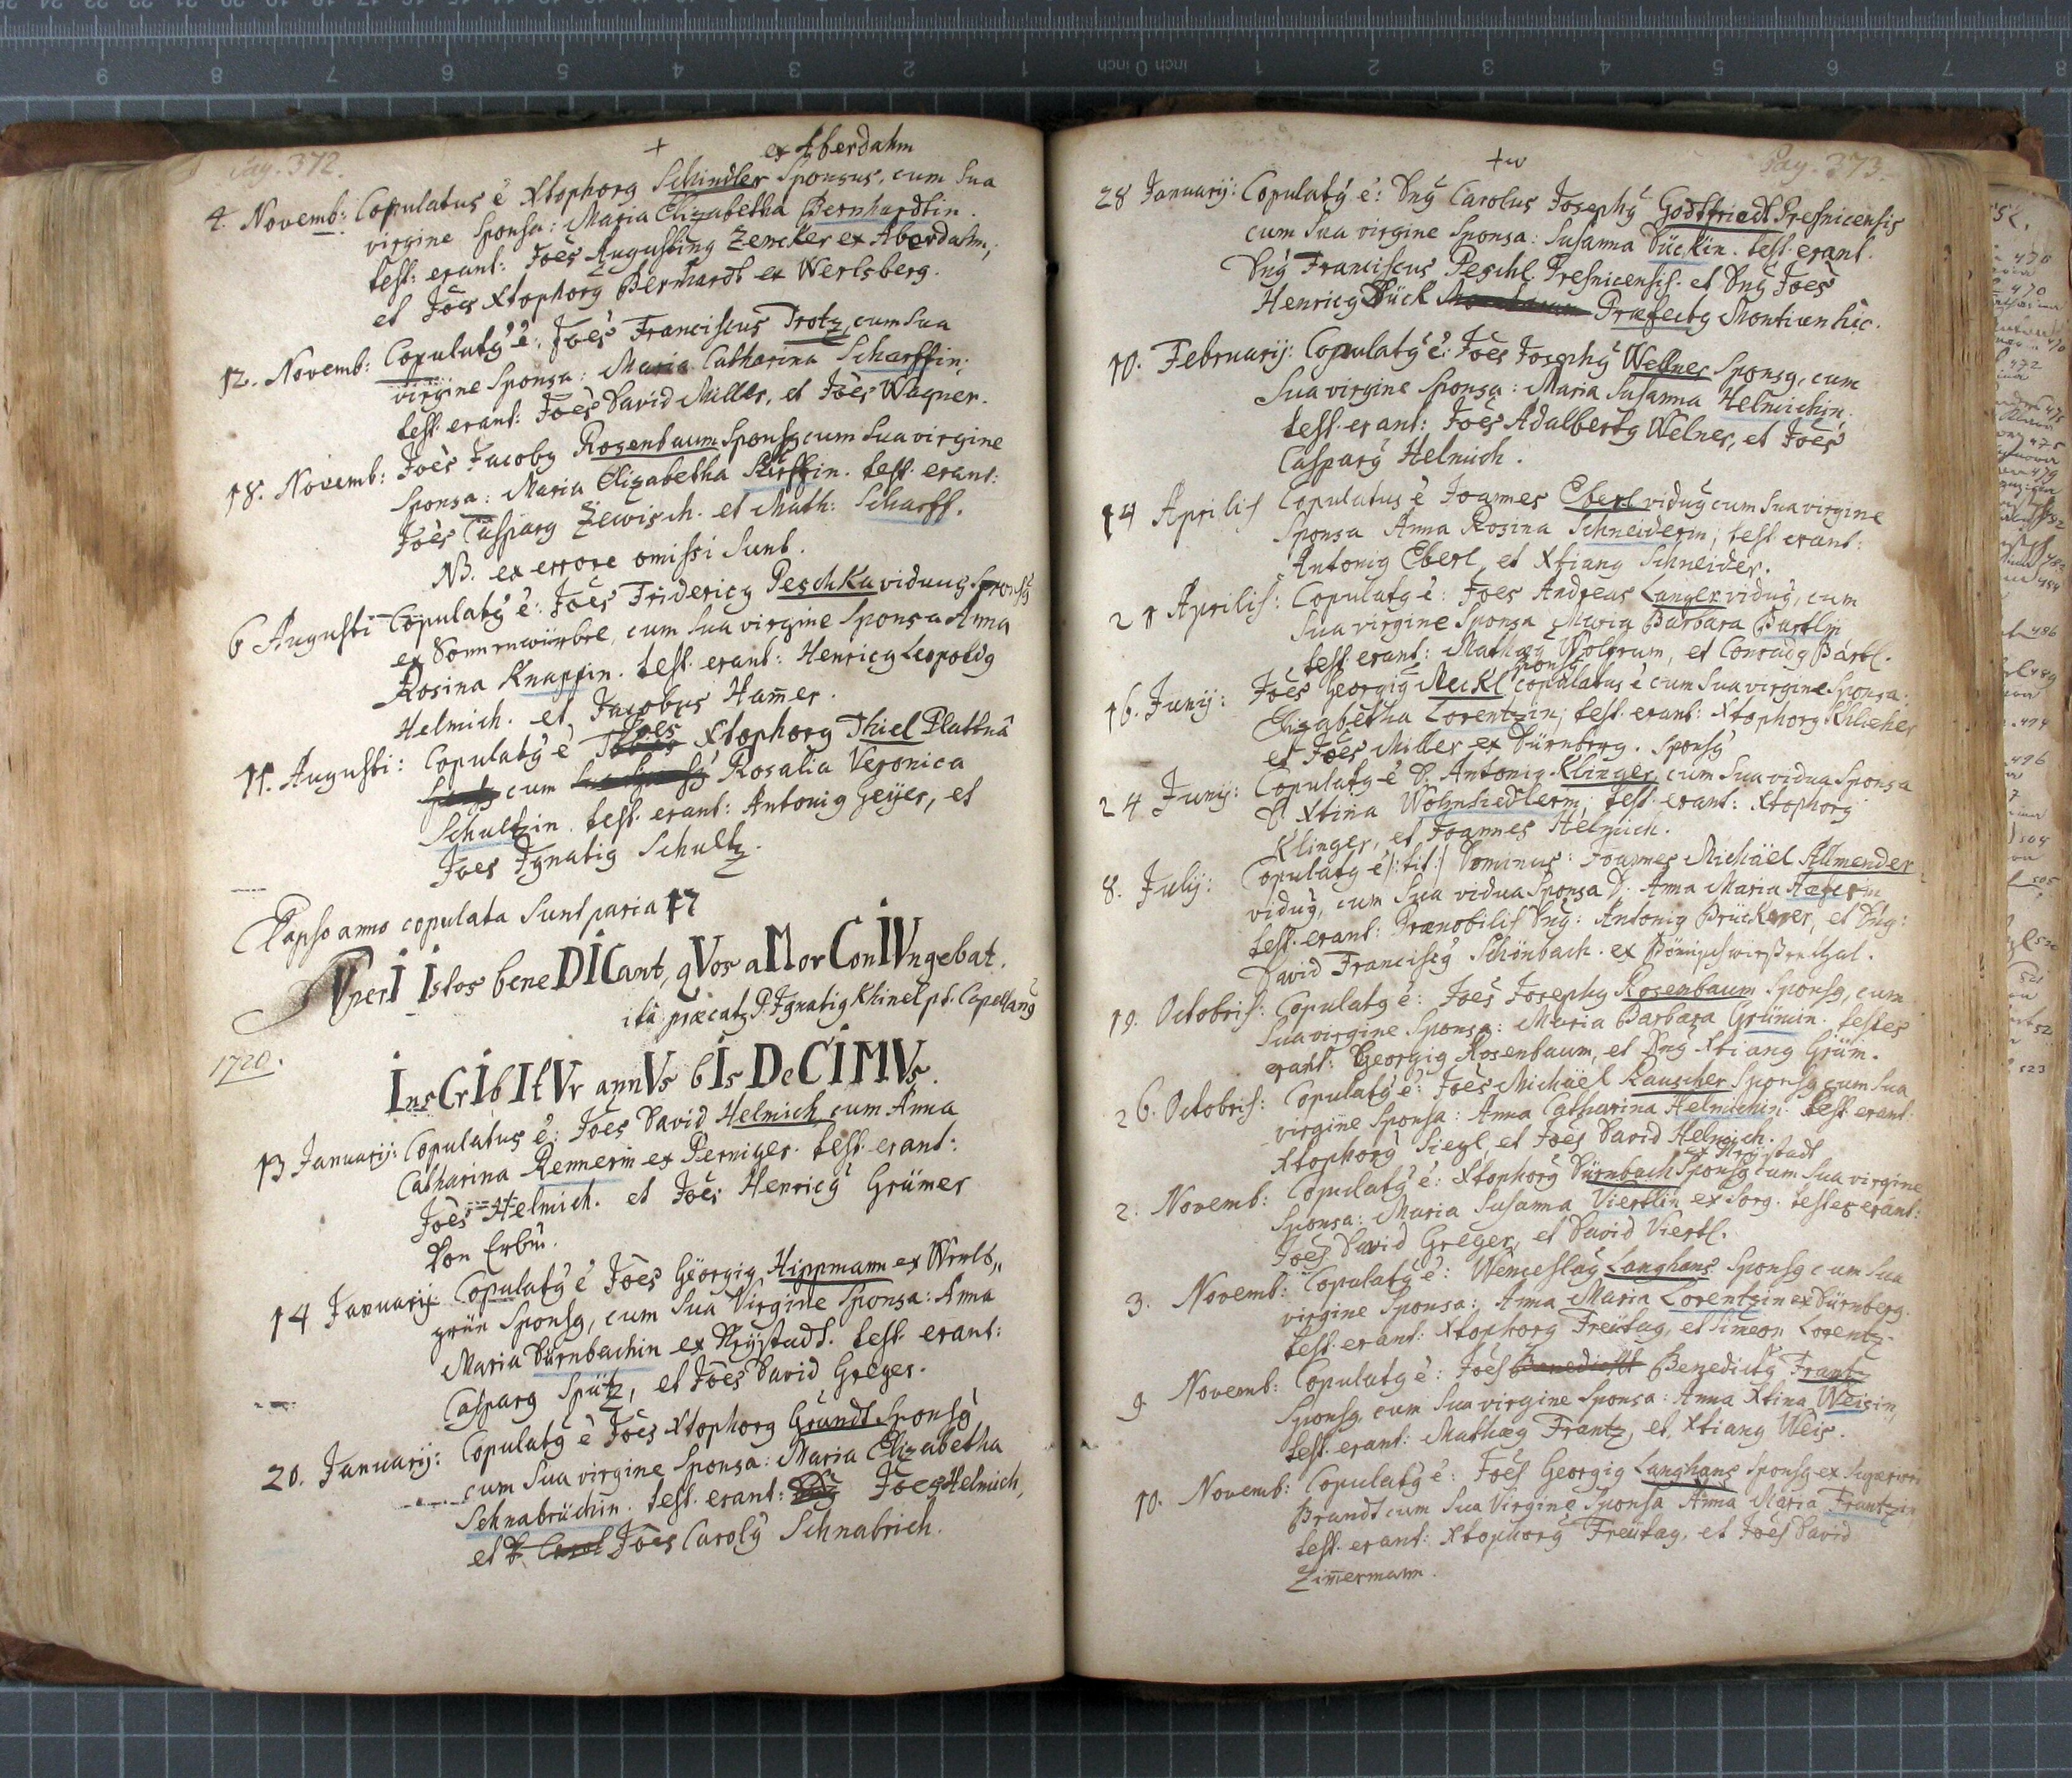 Pag. 372.
+ ex Aberdahm
4. Novemb: Copulatus ê Xtophorg Schindler Sponsus, cum sua
virgine Sponsa: Maria Elizabetha Bernhardtin.
test: erant: Joês Augusting Zencker ex Aberdahm,
et Joês Xtophorg Bernhardt ex Werlsberg.
12. Novemb: Copulatg ê: Joês Franciscus Trotz, cum sua
virgine Sponsa: Maria Catharina Scharffin.
test. erant: Joês David Miller, et Joês Wagner.
18. Novemb: Joês Jacobg Rosenbaum Sponsg cum sua virgine
Sponsa: Maria Elizabetha test. erant:
Joês Casparg Zewisch. et Math: Scharff.
NB. ex errore omissi sunt.
6 Augusti Copulatg ê: Joês Fridericg Peschka viduus Sponsg
ex Sonnenwürbel, cum sua virgine Sponsa Anna
Rosina Knappin. test. erant: Henricg Leopoldg
Helmich. et Jacobus Ham̄er.
11. Augusti: Copulatg ê Joês Xtophorg Thiel Plattnâ
cum Rosalia Veronica
Schultzin. test. erant: Antonig Geijer, et
Joes Ignatig Schultz.
Elapso anno copulata sunt paria 17
sVperI Istos beneDICant, qVos aMor ConIVngebat.
ità præcatg P. Ignatig Khinel p.t. Capellang
1720.
InsCrIbItVr annVs bIs DeCIMVs.
13 Januarij: Copulatus ê: Joês David Helmich cum Anna
Catharina Rennerin ex Perniger. test. erant:
Joês Helmich. et Joês Henricg Grümer
Von Erbm̄.
14 Januarij: Copulatg ê Joês Geörgig Hippmann ex Werls„
grün Sponsg, cum sua Virgine Sponsa: Anna
Maria Dürnbachin ex Neÿstadt. test. erant:
Casparg Spütz, et Joês David Greger.
20. Januarij: Copulatg ê Joês Xtophorg Grundt Sponsg
cum sua virgine Sponsa: Maria Elizabetha
Schnabrüchin. test. erant: Joes Helmich,
et Joês Carolg Schnabrich.
+
Pag. 373.
28 Januarij: Copulatg ê: Dng Carolus Josephg Godtfriedt Presnicensis
cum sua virgine Sponsa: Susanna Dückin. test. erant.
Dng Franciscus Peschl. Presnicensis. et Dng Joês
Henricg Dück Præfectg Montium hic.
10. Februarij: Copulatg ê: Joês Josephg Wellner Sponsg, cum
sua virgine Sponsa: Maria Susanna Helmichin.
test. erant: Joês Adalbertg Welner, et Joês
Casparg Helmich.
14 Aprilis Copulatus ê Joannes Eberl vidug cum sua virgine
Sponsa Anna Rosina Schneiderin; test. erant:
Antonig Eberl, et Xtiang Schneider.
21 Aprilis: Copulatg ê: Joes Andreas Langer vidug, cum
sua virgine Sponsa Maria Barbara Bartlin
test. erant: Mathæg Wolfrum, et Conradg Bartl.
16. Junij: Joês Georgig Meckl Sponsg copulatus ê cum sua virgine Sponsa:
Elizabetha Lorentzin; test. erant: Xtophorg
et Joês Miller ex Dürnberg. Sponsg
24 Junij: Copulatg ê D. Antonig Klinger, cum sua vidua Sponsa
D. Xtina test. erant: Xtophorg
Klinger, et Joannes Helmich.
8. Julij: Copulatg ê /: tit: / Dominus: Joannes Michäel Allmender
vidug, cum sua vidua Sponsa D. Anna Maria
test. erant: Prænobilis Dng: Antonig Prückner, et Dng:
David Franciscg Schönbach. ex
19. Octobris: Copulatg ê: Joês Josephg Rosenbaum Sponsg, cum
sua virgine Sponsa: Maria Barbara Grümin. testes
erant: Georgig Rosenbaum, et Dng Xtiang Grüm.
26. Octobris: Copulatg ê: Joês Michäel Rauscher Sponsg cum sua
virgine Sponsa: Anna Catharina Helmichin. test. erant.
Xtophorg Siegl, et Joês David Helmich.
ex Neÿstadt
2. Novemb: Copulatg ê: Xtophorg Dürnbach Sponsg cum sua virgine
Sponsa: Maria Susanna Viertlin ex Sorg. testes erant:
Joês David Greger, et David Viertl.
3. Novemb: Copulatg ê: Wenceslag Langhans Sponsg cum sua
virgine Sponsa: Anna Maria Lorentzin ex Dürnberg.
test. erant: Xtophorg Freütag, et Simeon Lorentz.
9 Novemb: Copulatg ê: Joês Benedictg Frantz
Sponsg, cum sua virgine Sponsa: Anna Xtina Weisin,
test. erant: Mathæg Frantz, et Xtiang Weis.
10. Novemb: Copulatg ê: Joês Georgig Langhans Sponsg ex Superiori
Brandt cum sua Virgine Sponsa Anna Maria Frantzin
test. erant: Xtophorg Freütag, et Joês David
Zim̄ermann.